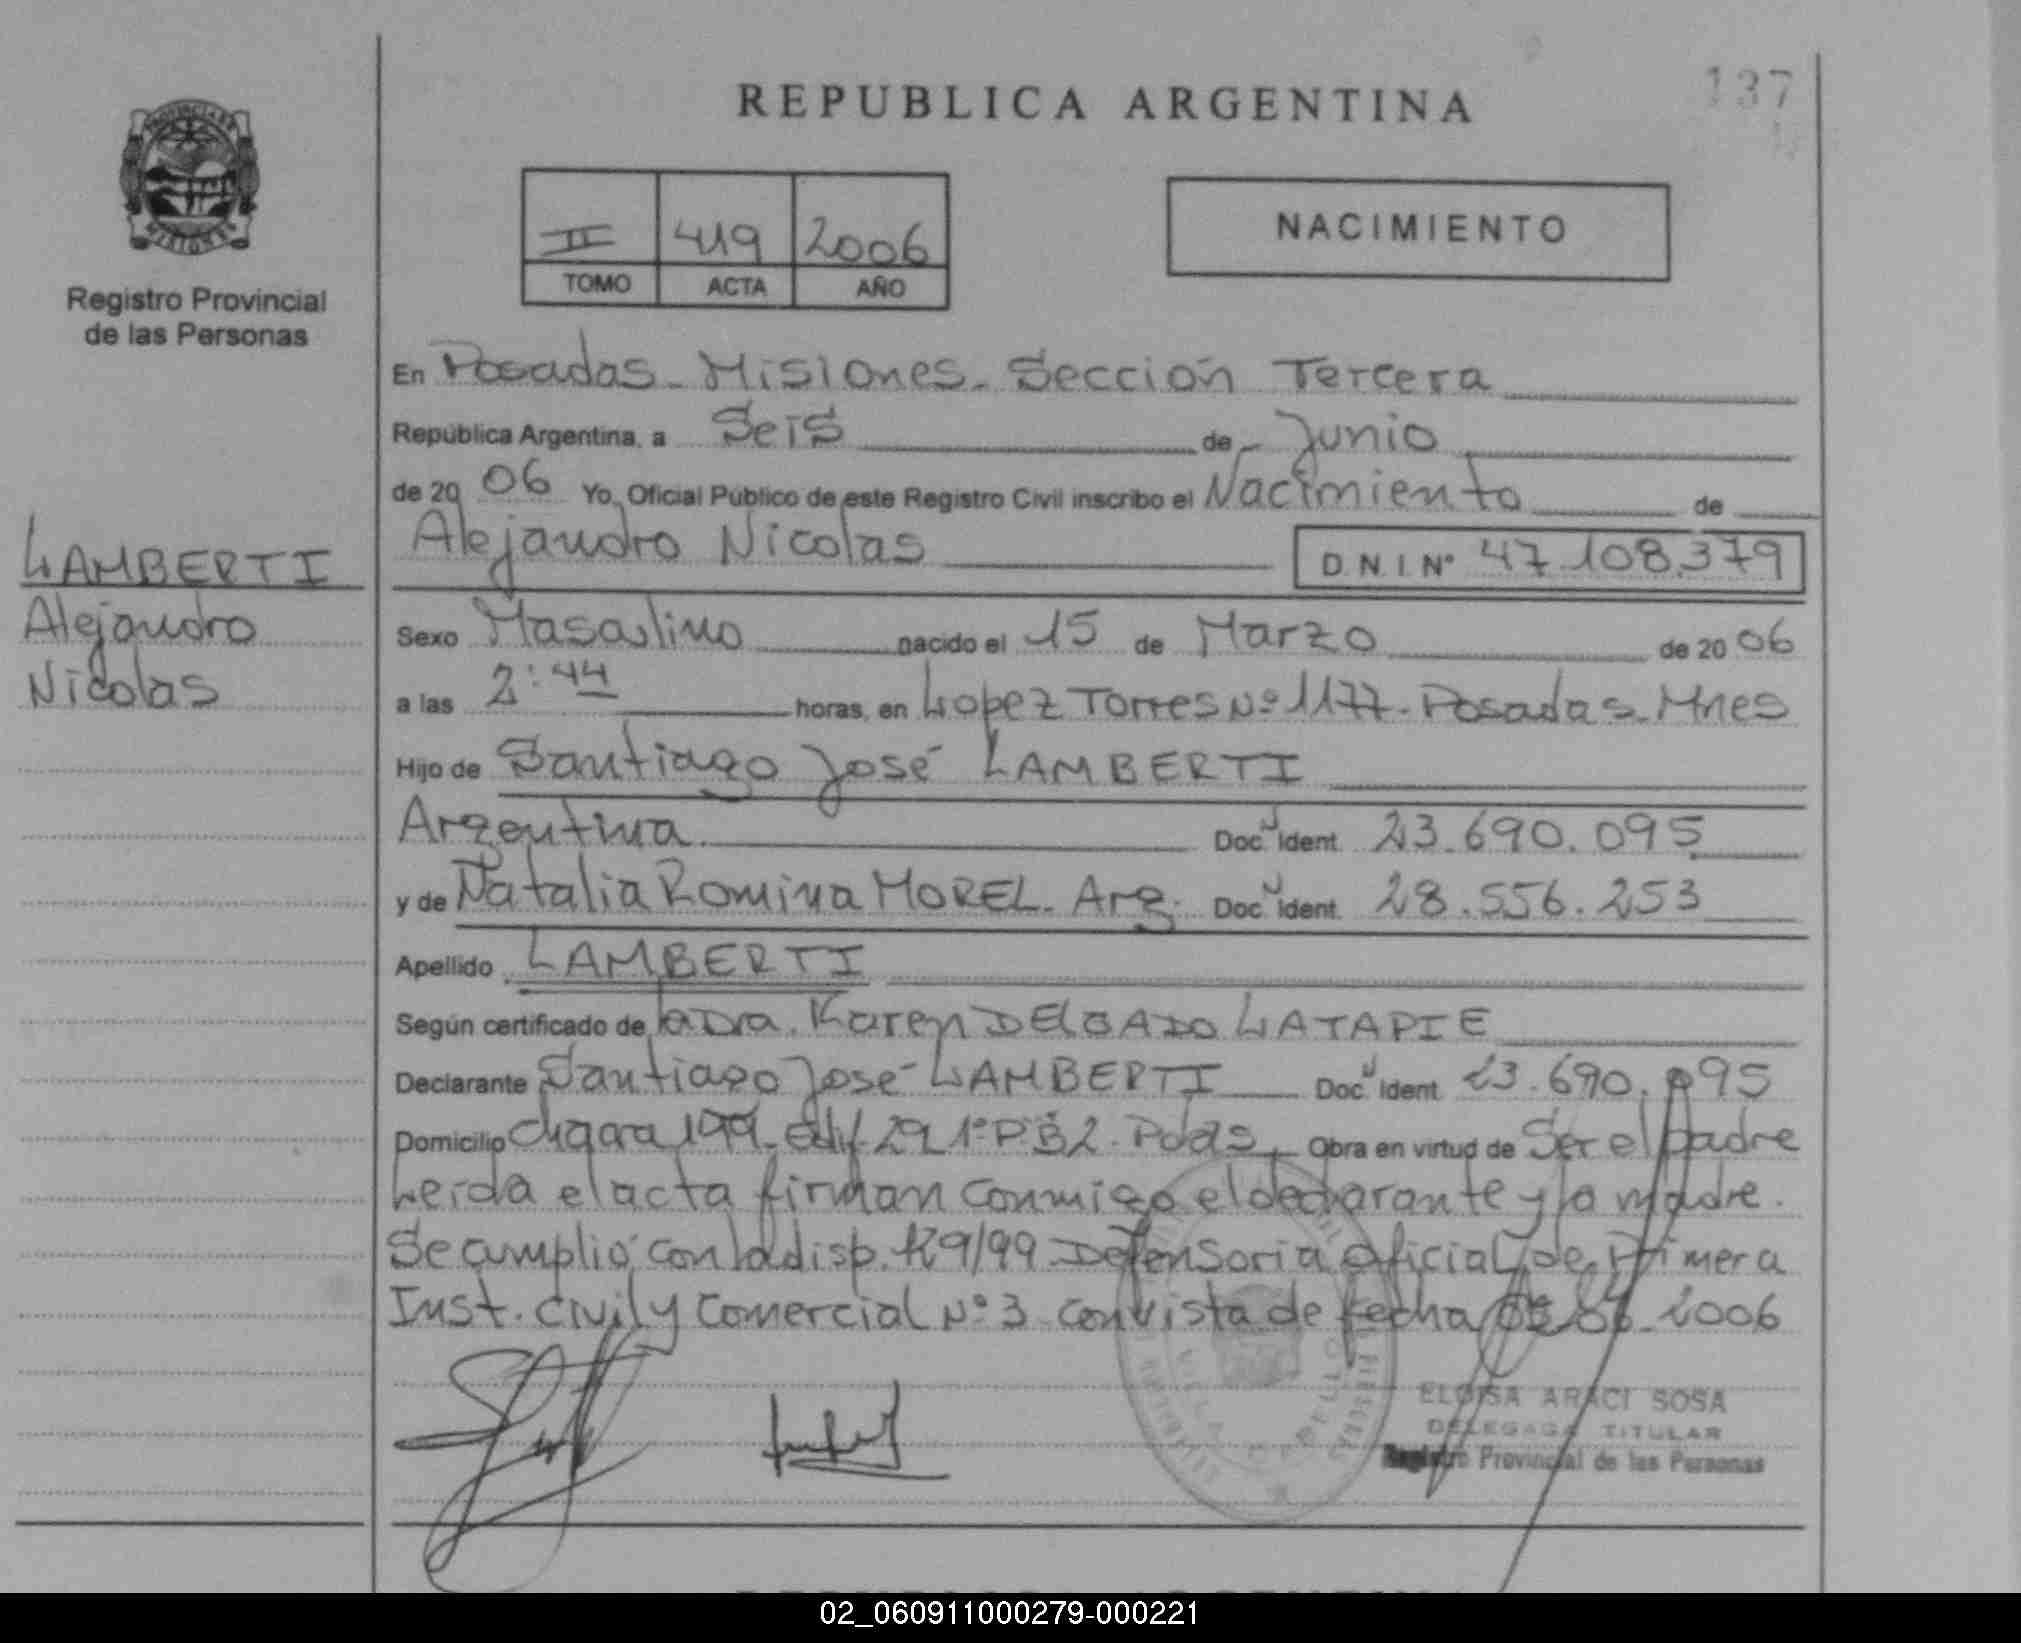 REPUBLICA ARGENTINA
137
II 419 2006
TOMO ACTA AÑO
NACIMIENTO
Registro Provincial
de las Personas
LAMBERTI
Alejandro
Nicolas
En Posadas - Misiones - Sección Tercera
República Argentina, a Seis de Junio
de 2006 Yo, Oficial Público de este Registro Civil inscribo el Nacimiento de
Alejandro Nicolas D.N.I. Nº 47.108.379
Sexo Masculino nacido el 15 de Marzo de 2006
a las 2:44 horas, en Lopez Torres Nº 1177 - Posadas - Mnes
Hijo de Santiago José LAMBERTI
Argentina Doc. Ident. 23.690.095
y de Natalia Romina MOREL - Arg. Doc. Ident. 28.556.253
Apellido LAMBERTI
Según certificado de la Dra. Karen DELGADO LATAPIE
Declarante Santiago José LAMBERTI Doc. Ident. 23.690.095
Domicilio Chacra 199 - Edif. 29 1º P. B2 - Pdas Obra en virtud de Ser el padre
Leída el acta firman conmigo el declarante y la madre.
Se cumplió con la disp. 129/99 Defensoria Oficial de Primera
Inst. Civil y Comercial Nº 3 con vista de fecha 06 2006
ELOISA ARACI SOSA
DELEGADA TITULAR
Registro Provincial de las Personas
02_060911000279-000221